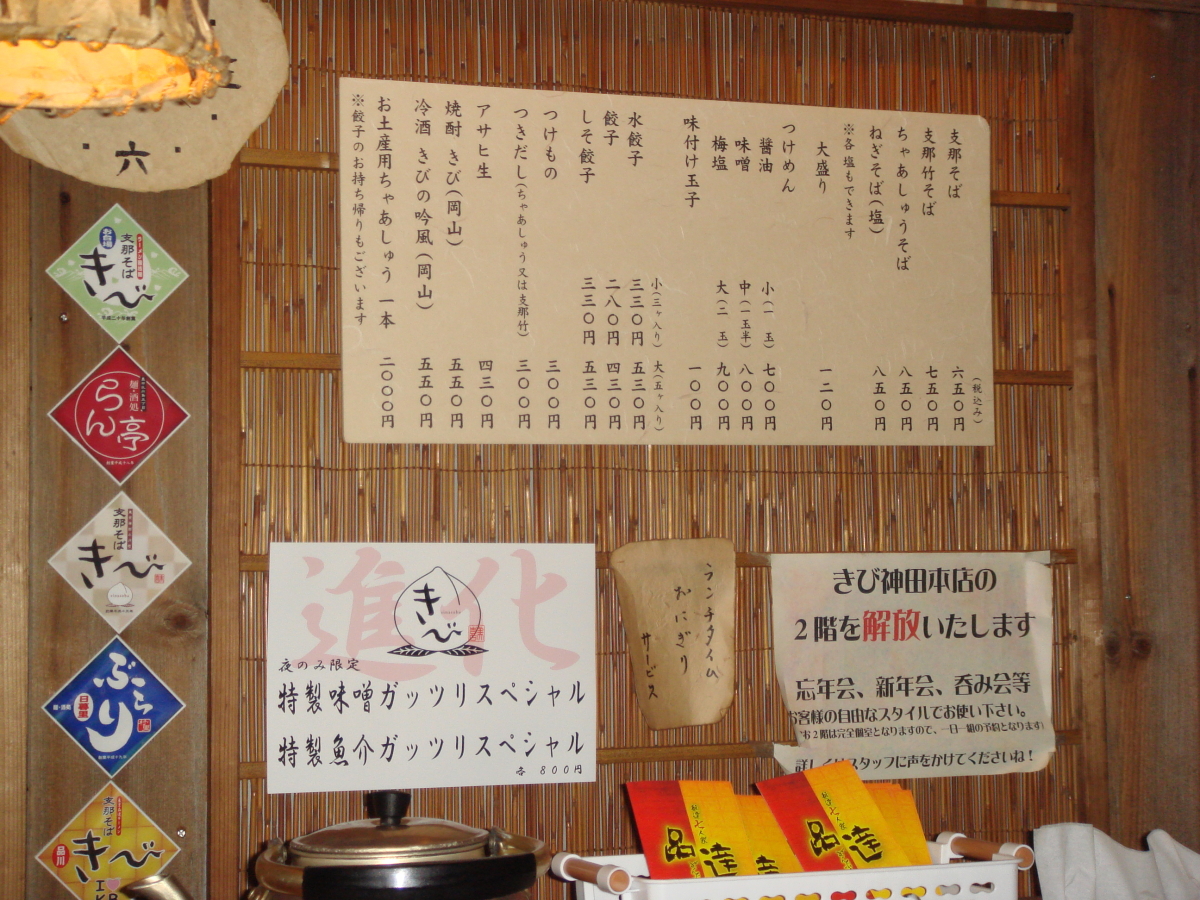 (税込み)
支那そば 六五〇円
支那竹そば 七五〇円
ちゃあしゅうそば 八五〇円
ねぎそば(塩) 八五〇円
※各塩もできます
大盛り 一二〇円
つけめん
醤油 小(一 玉) 七〇〇円
味噌 中(一玉半) 八〇〇円
梅塩 大(二 玉) 九〇〇円
味付け玉子 一〇〇円
小(三ヶ入り) 大(五ヶ入り)
水餃子 三三〇円 五三〇円
餃子 二八〇円 四三〇円
しそ餃子 三三〇円 五三〇円
つけもの 三〇〇円
つきだし(ちゃあしゅう又は支那竹) 三〇〇円
アサヒ生 四三〇円
焼酎 きび(岡山) 五五〇円
冷酒 きびの吟風(岡山) 五五〇円
お土産用ちゃあしゅう 一本 二〇〇〇円
※餃子のお持ち帰りもございます
六
お台場
支那そば
きび
麺・酒処
らん亭
支那そば
きび
ぶらり
日暮里
支那そば
きび
品川
進化
きび
夜のみ限定
特製味噌ガッツリスペシャル
特製魚介ガッツリスペシャル
各 800円
ランチタイム
おにぎり
サービス
きび神田本店の
2階を解放いたします
忘年会、新年会、呑み会等
お客様の自由なスタイルでお使い下さい。
お2階は完全個室となりますので、一日一組の予約となります
詳しくはスタッフに声をかけてくださいね!
品達
品達